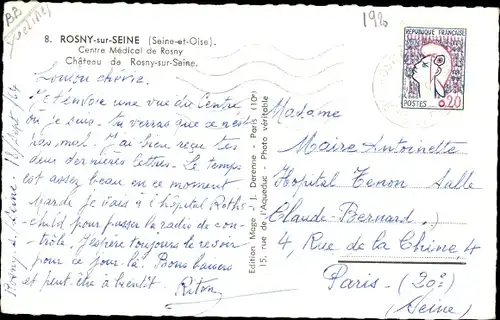 B.P.
1920
8. ROSNY-sur-SEINE (Seine-et-Oise).
Centre Médical de Rosny
Château de Rosny-sur-Seine.
REPUBLIQUE FRANÇAISE
POSTES 0,20
Rosny s/ Seine 18/Sept/64
chérie.
Je t'envoie une vue du Centre
où je suis. Tu verras que ce n'est
pas mal. J'ai bien reçue tes
deux dernières lettres. Le temps
est assez beau en ce moment
Mardi je vais à l'hôpital Roths-
child pour passer la radio de con-
trôle. J'espère toujours te revoir
pour ce jour-là. Bons baisers
et peut-être à bientôt. Riton
Edition Mage - J. Derenne - Paris (10e)
15, rue de l'Aqueduc - Photo véritable
Madame
Marie Antoinette
Hopital Tenon Salle
Claude-Bernard.
4, Rue de la Chine, 4
Paris-(20e)
(Seine)